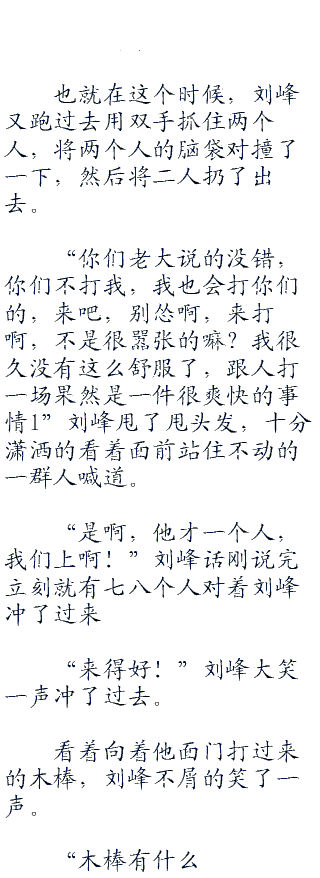 也就在这个时候，刘峰
又跑过去用双手抓住两个
人，将两个人的脑袋对撞了
一下，然后将二人扔了出
去。
“你们老大说的没错，
你们不打我，我也会打你们
的，来吧，别怂啊，来打
啊，不是很嚣张的嘛？我很
久没有这么舒服了，跟人打
一场果然是一件很爽快的事
情1”刘峰甩了甩头发，十分
潇洒的看着面前站住不动的
一群人喊道。
“是啊，他才一个人，
我们上啊！”刘峰话刚说完
立刻就有七八个人对着刘峰
冲了过来
“来得好！”刘峰大笑
一声冲了过去。
看着向着他面门打过来
的木棒，刘峰不屑的笑了一
声。
“木棒有什么